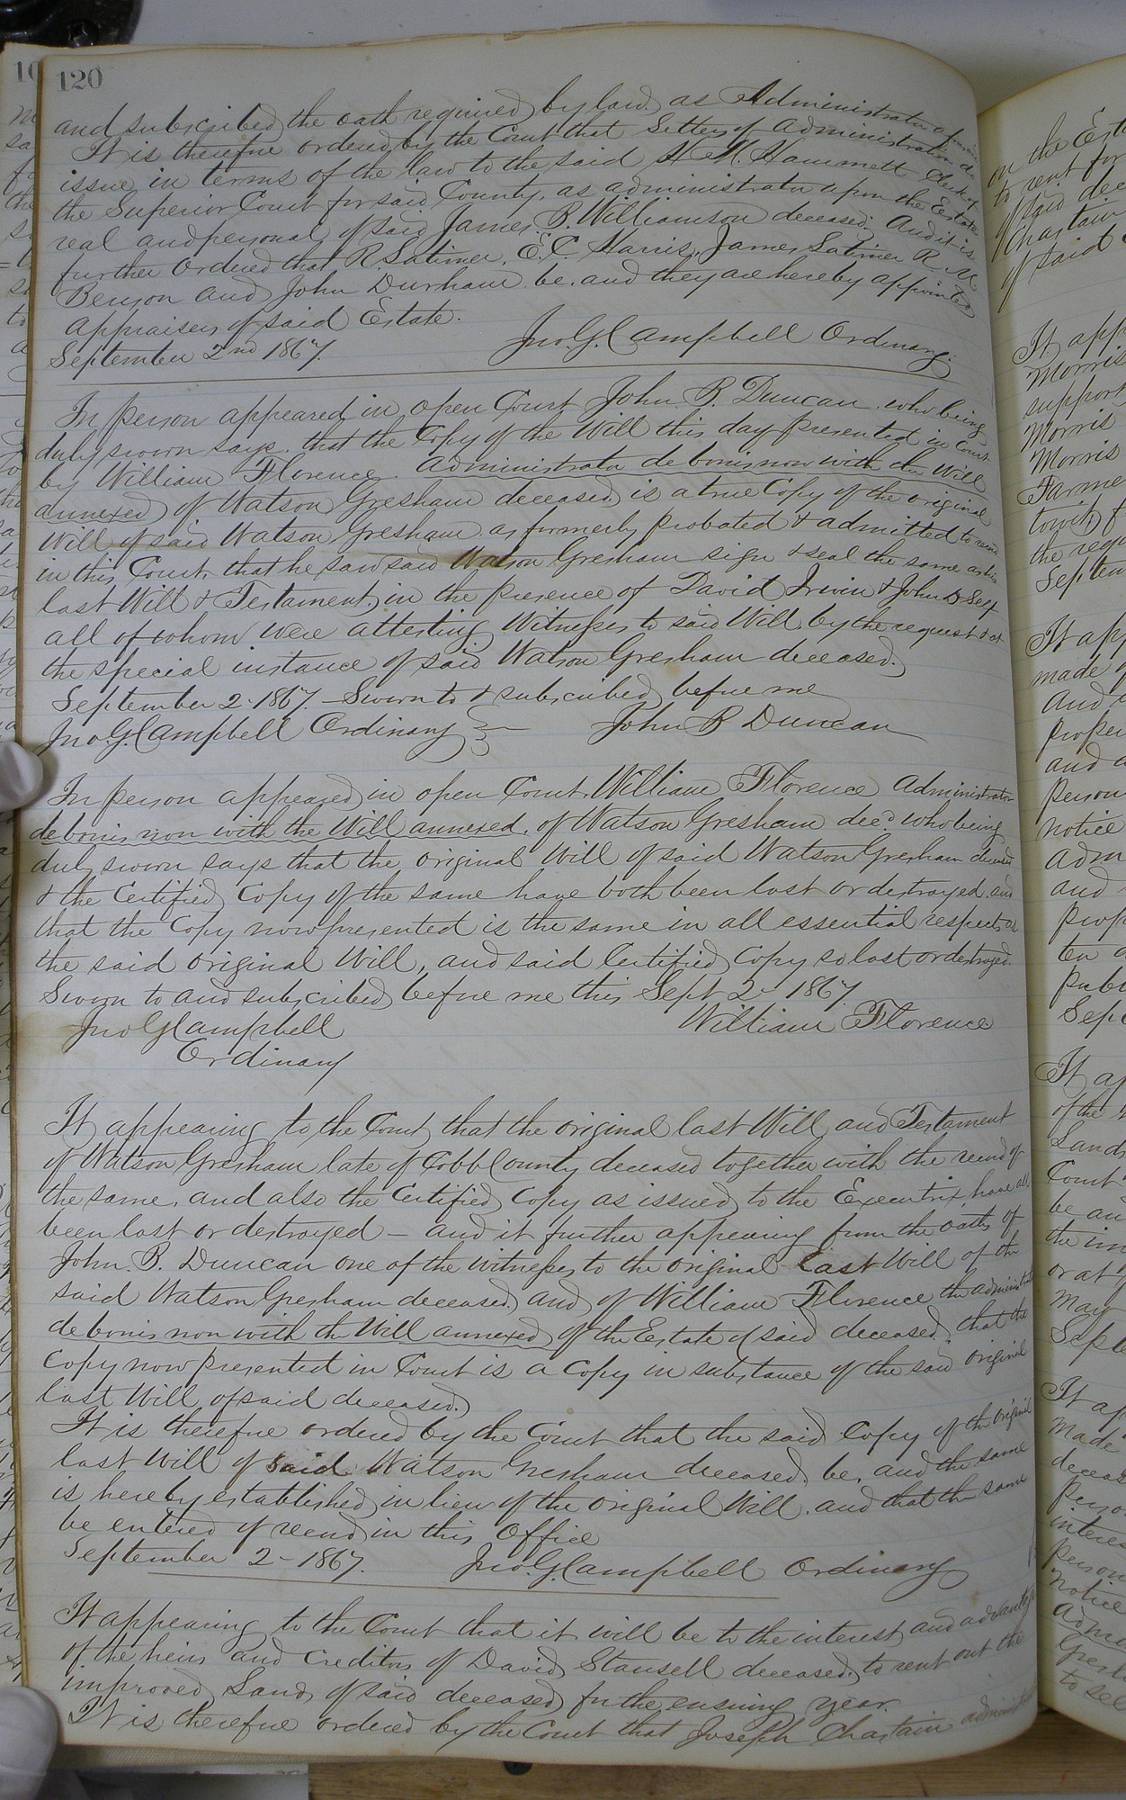 120
and subscribed the oath required by law as Administrator
It is therefore ordered by the Court that Letters of Administration do
issue in terms of the law to the said H. M. Hammett Clerk of
the Superior Court for said County, as administrator upon the Estate
real and personal of said James B. Williamson deceased. And it is
further ordered that R. Latimer, E. C. Harris, James Latimer R. M.
Benson and John Durham be, and they are hereby appointed
appraisers of said Estate.
September 2nd 1867. Jno. G. Campbell Ordinary.
In person appeared in open Court John B. Duncan who being
duly sworn says that the Copy of the Will this day presented in Court
by William Florence. Administrator de bonis non with the Will
annexed of Watson Gresham deceased is a true Copy of the original
Will of said Watson Gresham as formerly probated & admitted to record
in this Court, that he saw said Watson Gresham sign & seal the same as his
last Will & Testament, in the presence of David Irwin & John D Self
all of whom were attesting Witnesses to said Will by the request & at
the special instance of said Watson Gresham deceased.
September 2 1867. Sworn to & subscribed before me
Jno. G. Campbell Ordinary John B Duncan
In person appeared in open Court William Florence Administrator
de bonis non with the Will annexed, of Watson Gresham decd who being
duly sworn says that the original Will of said Watson Gresham deceased
& the Certified Copy of the same have both been lost or destroyed and
that the Copy now presented is the same in all essential respects as
the said original Will, and said Certified Copy so lost or destroyed.
Sworn to and subscribed before me this Sept 2 1867
Jno G Campbell William Florence
Ordinary
It appearing to the Court that the original last Will and Testament
of Watson Gresham late of Cobb County deceased together with the record of
the same, and also the Certified Copy as issued to the Executrix, have all
been lost or destroyed – and it further appearing from the oaths of
John B. Duncan one of the witnesses to the original Last Will of the
said Watson Gresham deceased and of William Florence the administrator
de bonis non with the Will annexed of the Estate of said deceased, that the
Copy now presented in Court is a Copy in substance of the said original
last Will of said deceased.
It is therefore ordered by the Court that the said Copy of the original
last Will of said Watson Gresham deceased be, and the same
is hereby established in lieu of the original Will, and that the same
be entered of record in this Office
September 2 – 1867. Jno. G. Campbell Ordinary
It appearing to the Court that it will be to the interest and advantage
of the heirs and creditors of David Stansell deceased to rent out the
improved Lands of said deceased for the ensuing year.
It is therefore ordered by the Court that Joseph Chastain administrator
on the Est
to rent for
of said dec
Chastain
of said
It app
Morris
support
Morris
Morris
Farme
towit, f
the requ
Septem
It app
made
And
proper
and a
person
notice
adm
and
prop
ten
publ
Sep
It ap
of the
Lands
Court
be an
the im
or at
may
Septe
It ap
made
deceas
perso
interes
person
notice
adm
Gresh
to sel